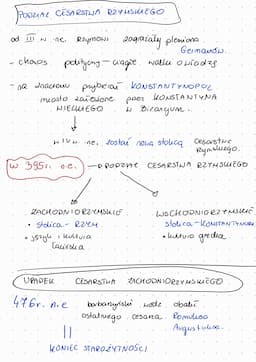 PODZIAŁ CESARSTWA RZYMSKIEGO
od III w n.e. Rzymowi zagrażały plemiona
Germanów.
- chaos polityczny - ciągłe walki o władzę
- na znaczeniu przybrał KONSTANTYNOPOL
miasto założone przez KONSTANTYNA
WIELKIEGO w Bizancjum.
w IV w. n.e. został nową stolicą Cesarstwa
Rzymskiego.
w 395r. n.e. PODZIAŁ CESARSTWA RZYMSKIEGO
ZACHODNIORZYMSKIE WSCHODNIORZYMSKIE
• stolica - RZYM • stolica - KONSTANTYNOPOL
• język i kultura • kultura grecka
łacińska
UPADEK CESARSTWA ZACHODNIORZYMSKIEGO
476r. n.e barbarzyński wódz obalił
ostatniego cesarza Romulusa
Augustulusa.
KONIEC STAROŻYTNOŚCI